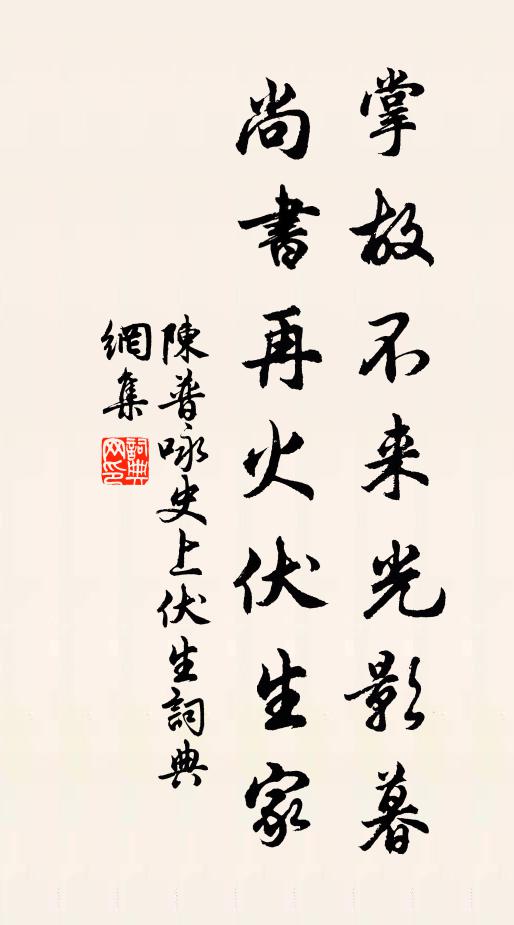 掌故不来光影暮
尚書再火伏生家
陳普咏史上伏生詞典
網集
詞典网印